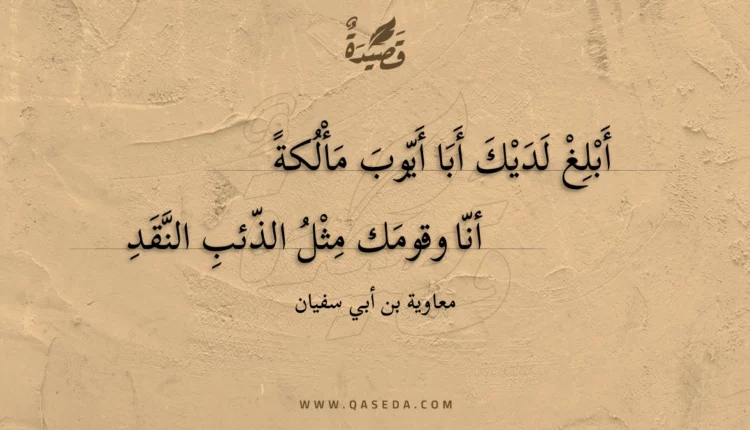 قَصِيْدَةٌ
أَبْلِغْ لَدَيْكَ أَبَا أَيّوبَ مَأْلُكةً
أنّا وقومَك مِثْلُ الذّئبِ النَّقَدِ
معاوية بن أبي سفيان
WWW.QASEDA.COM